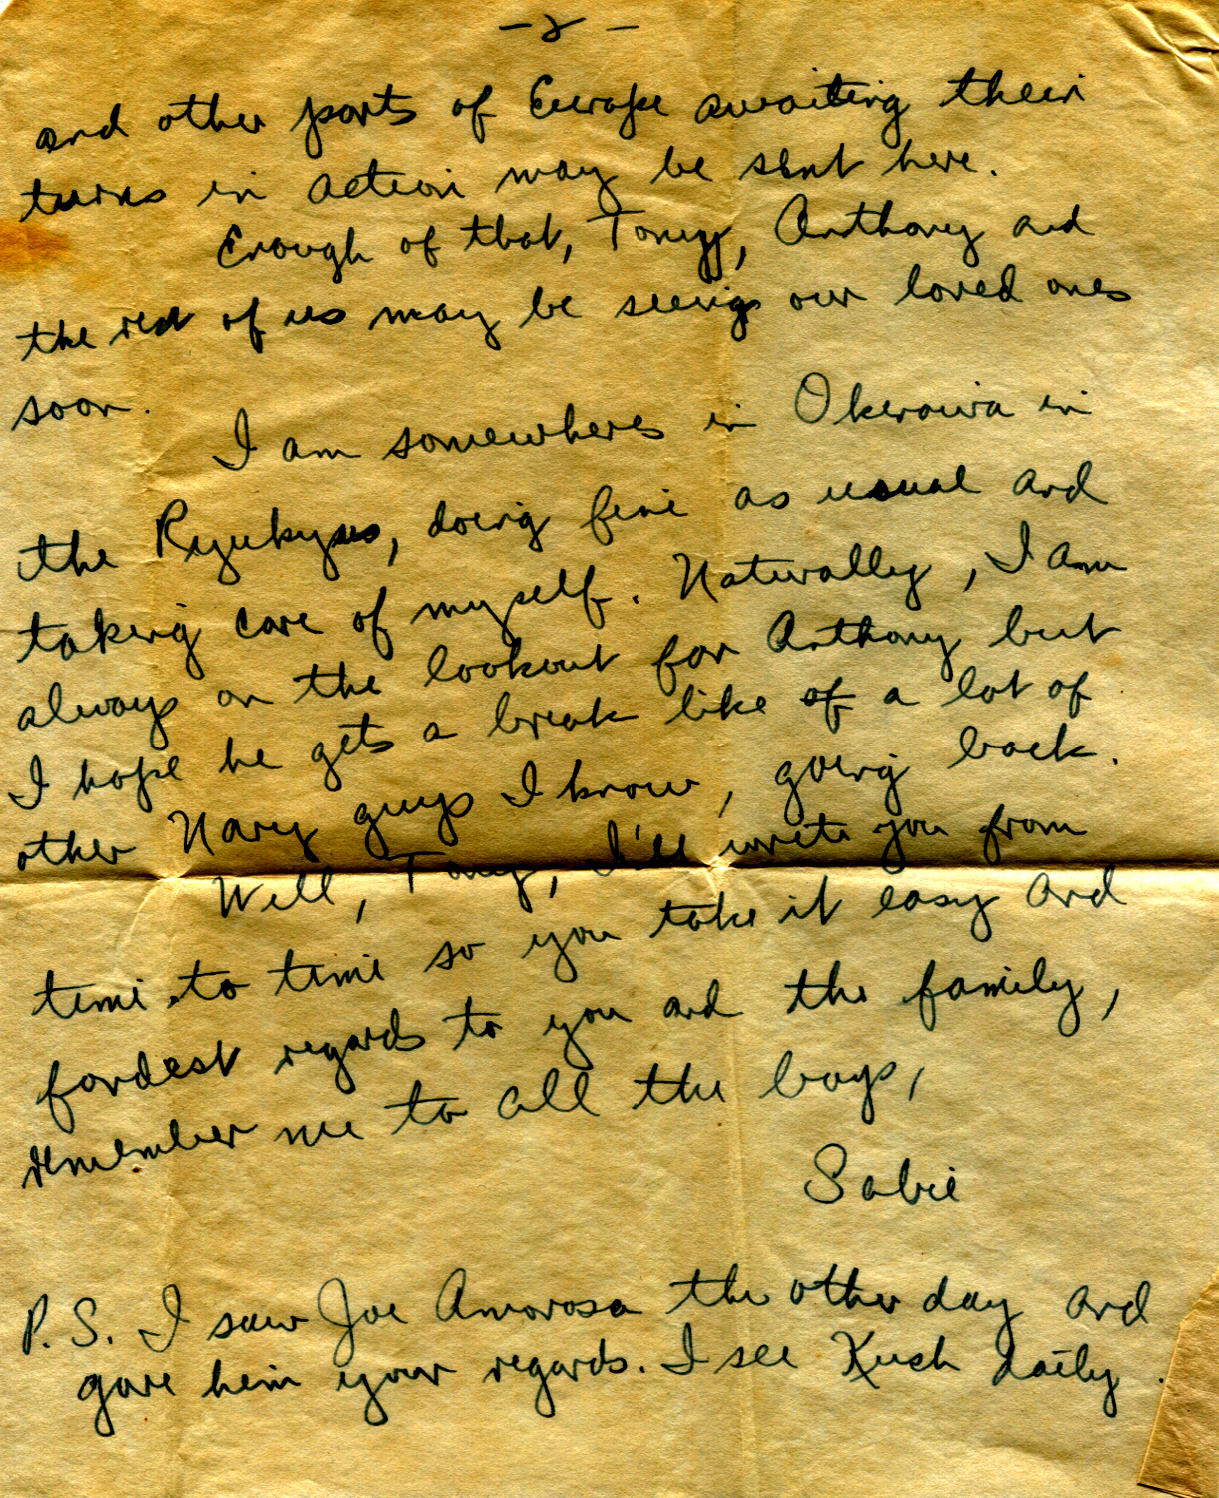 - 2 -
and other parts of Europe awaiting their
turns in action may be sent here.
Enough of that, Tony, Anthony and
the rest of us may be seeing our loved ones
soon.
I am somewheres in Okinawa in
the Ryukyus, doing fine as usual and
taking care of myself. Naturally, I am
always on the lookout for Anthony but
I hope he gets a break like of a lot of
other Navy guys I know, going back.
Well, Tony, I'll write you from
time to time so you take it easy and
fondest regards to you and the family,
remember me to all the boys,
Sabie
P.S. I saw Joe Amorosa the other day and
gave him your regards. I see Kuch daily.